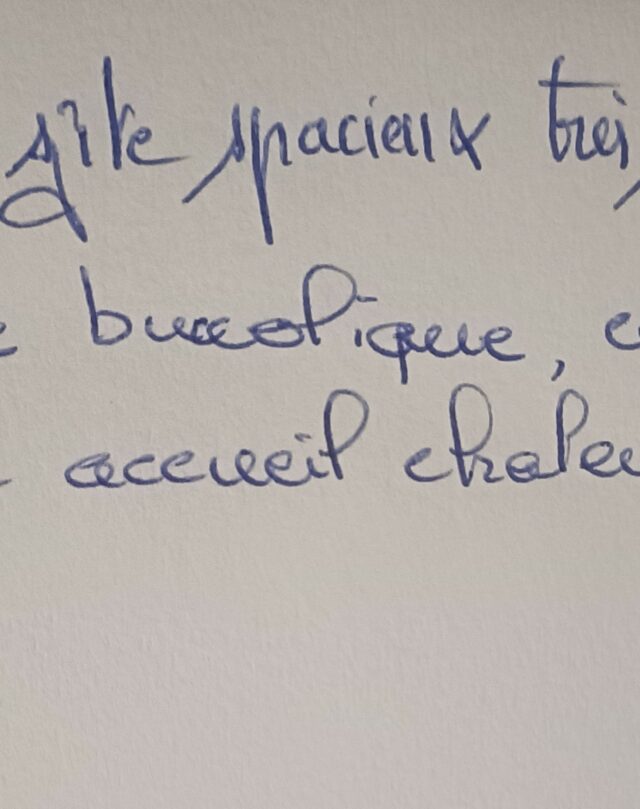 gîte spacieux très
bucolique, c
accueil chaleu